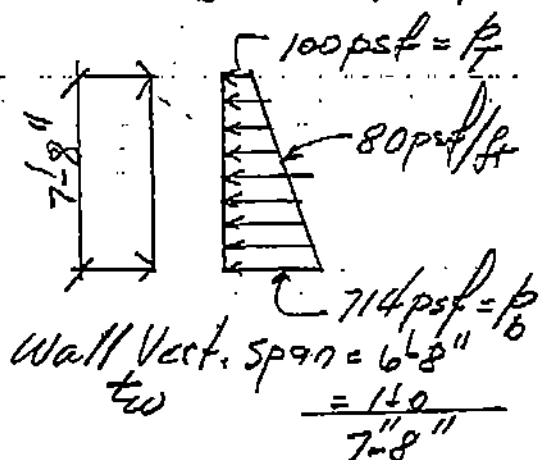 100psf = PT
7'-8"
80psf/ft
714psf = Pb
Wall Vert. Span = 6'-8"
tw = 1'-0
7'-8"